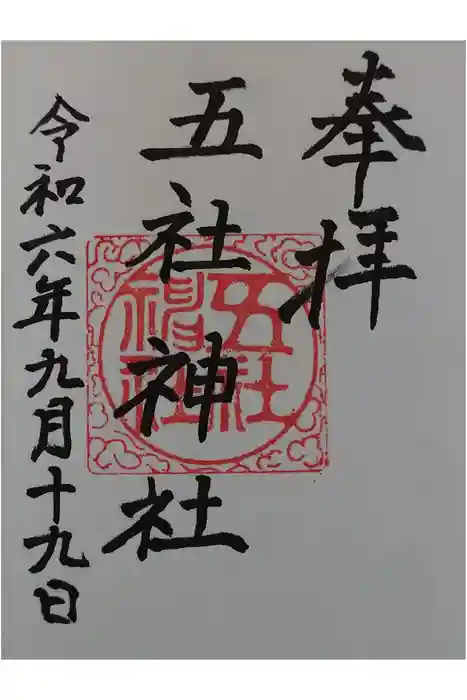 奉拝
五社神社
五社神社
令和六年九月十九日